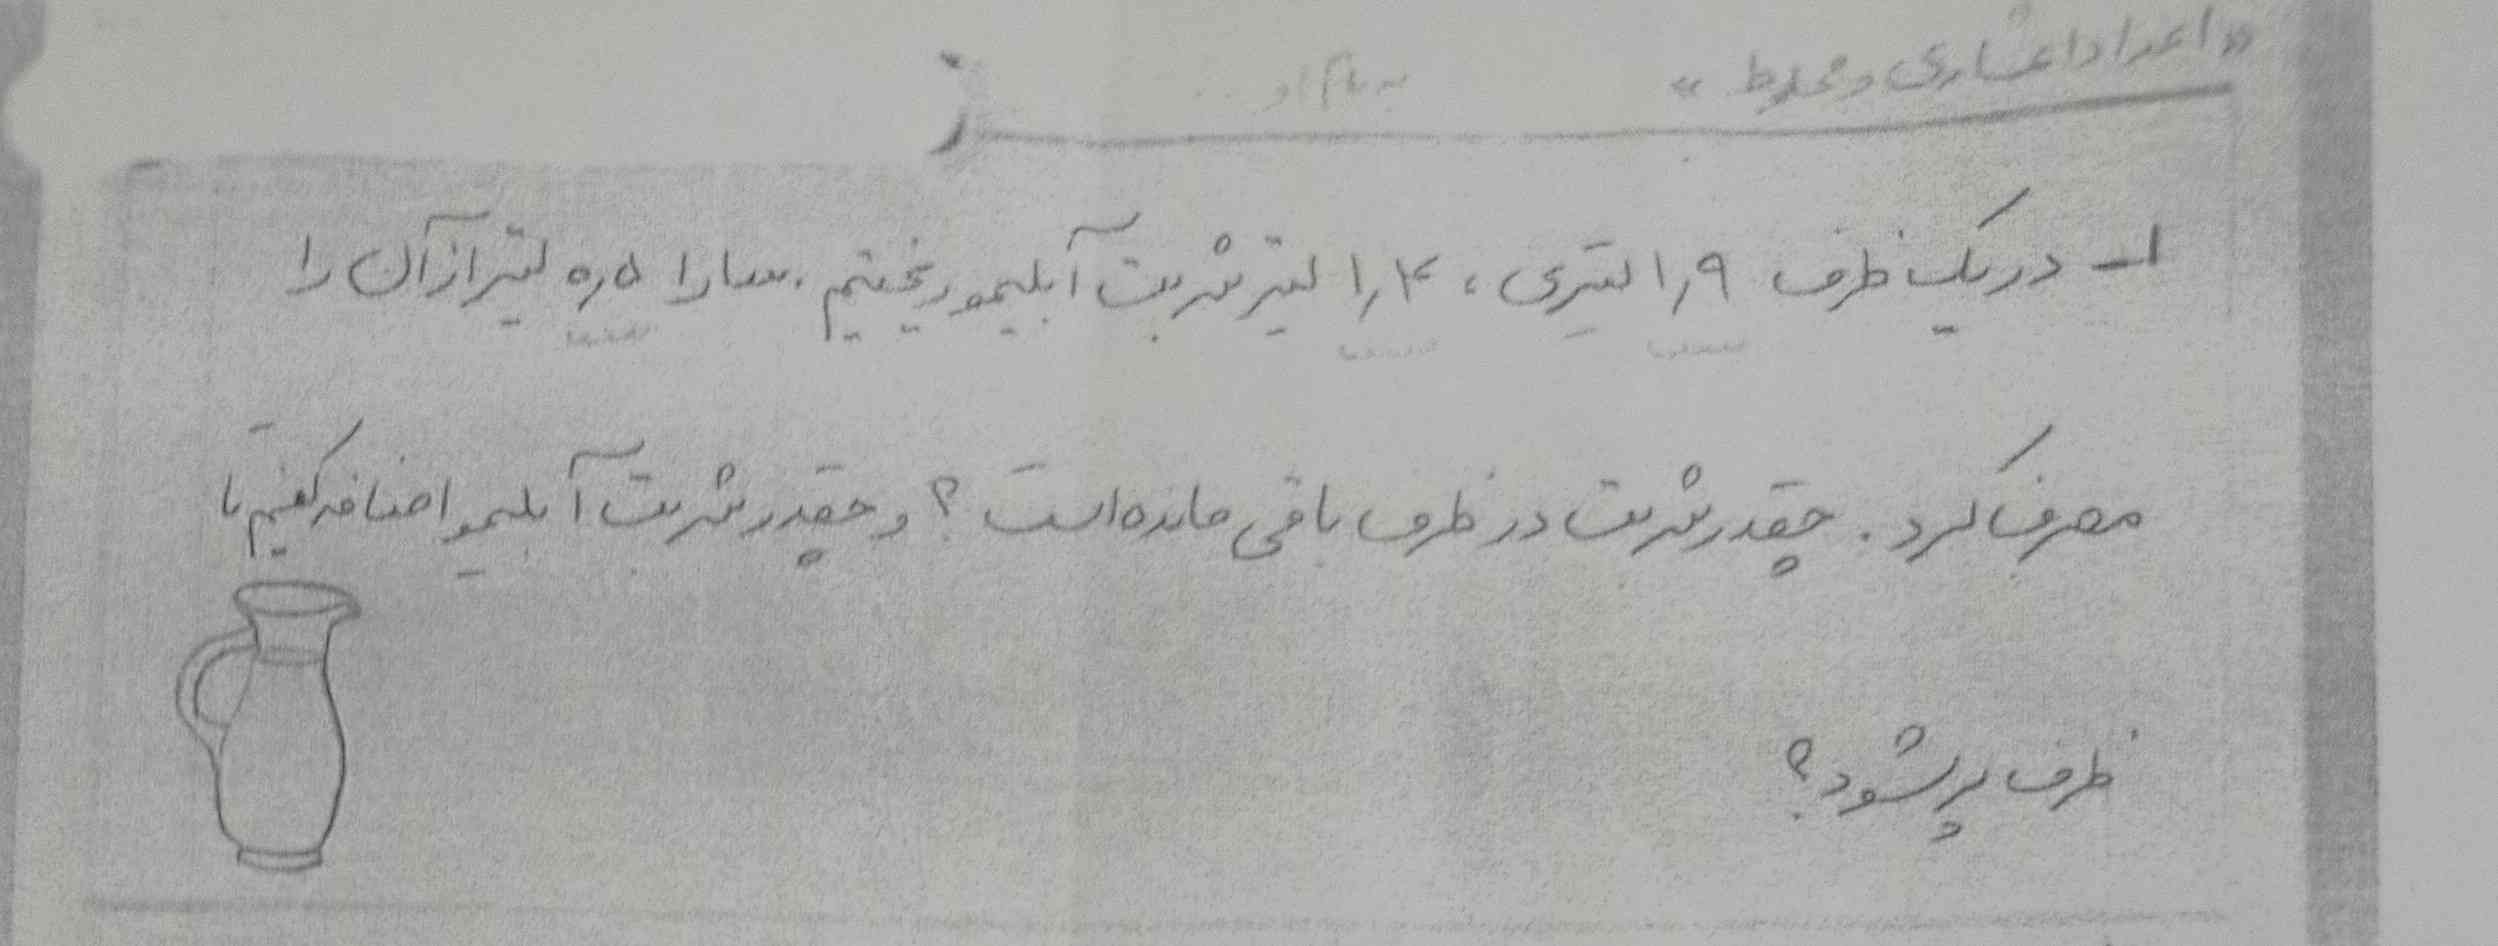 «اعداد اعشاری و مخلوط»
۱- در یک ظرف ۱٫۹ لیتری، ۱٫۴ لیتر شربت آبلیمو ریختیم. سارا ۰٫۵ لیتر از آن را
مصرف کرد. چقدر شربت در ظرف باقی مانده است؟ و چقدر شربت آبلیمو اضافه کنیم تا
ظرف پر شود؟